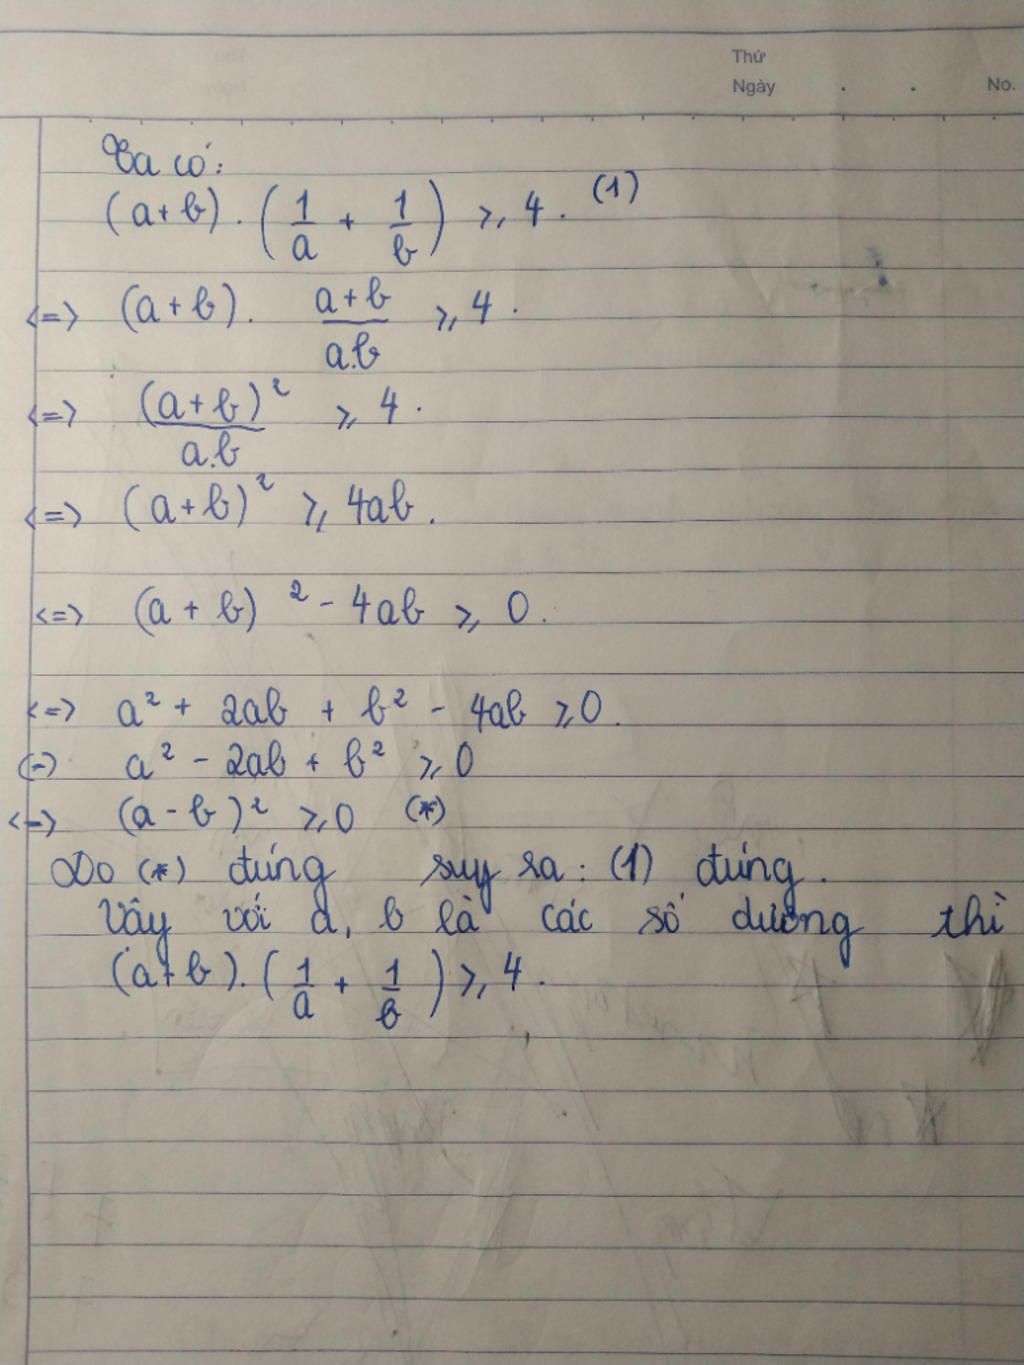 Thứ
Ngày . . No.
Ta có:
(a+b) . (1/a + 1/b) ≥ 4. (1)
<=> (a+b). a+b/a.b ≥ 4.
<=> (a+b)²/a.b ≥ 4.
<=> (a+b)² ≥ 4ab.
<=> (a+b)² - 4ab ≥ 0.
<=> a² + 2ab + b² - 4ab ≥ 0.
(=) a² - 2ab + b² ≥ 0
<=> (a-b)² ≥ 0 (*)
Do (*) đúng suy ra: (1) đúng.
Vậy với a, b là các số dương thì
(a+b).(1/a + 1/b) ≥ 4.